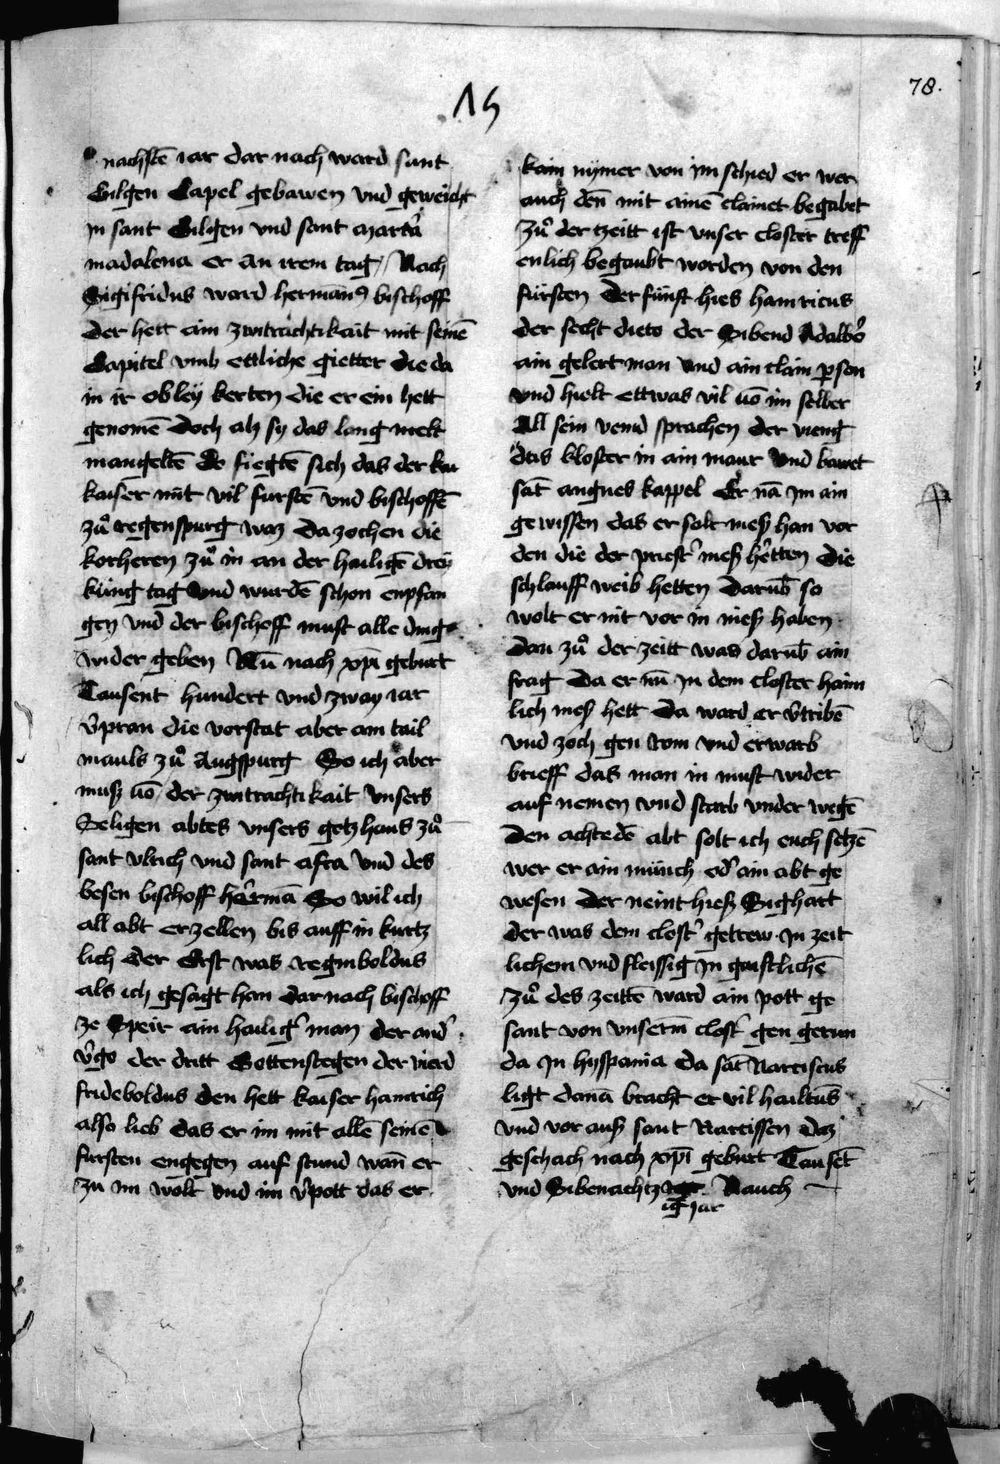 78.
15
nachstē iar dar nach ward sant
Gilgen Capel gebawen vnd geweicht
jn sant Gilgen vnd sant marta
madalena er an irem tag / Nach
Sigifridus ward hermanꝰ bischoff
der hett ain zwitrachtikait mit seinē
Capitel vmb ettliche gietter die da
in ir obley herten die er ein hett
genomē Doch als sy das lang
mangeltē Do fiegtē sich das der kai
kaiser mit vil furstē vnd bischoffē
zů regenspurg waz da zochen die
korheren zů in an der hailigē drey
kúng tag vnd wurdē schon enpfan
gen vnd der bischoff must alle ding
wider geben Nū nach xpī geburt
Tausent hundert vnd zway iar
v̄pran die vorstat aber am tail
mauls zů Augspurg So ich aber
musz vō der zwitrachtikait vnsers
Seligen abtes vnsers getzhaus zů
sant vlrich vnd sant afra vnd des
besen bischoff hermā So wil ich
all abt erzellen bis auff in kurtz
lich der Erst was reginboldus
als ich gesagt han dar nach bischoff
ze Speir ain hailig̉ man der and̉
v̄go der dritt Gottenstegen der vierd
frideboldus den hett kaiser hainrich
also lieb das er im mit allē seinē
fursten engegen auf stund wan̄ er
zu im wolt vnd im v̄pott das er
kain nymer von im schied er wer
auch den̄ mit ainē clainet begabet
Zů der tzeitt ist vnser closter treff
enlich begaubt worden von den
fursten Der fúnft hies hainricus
der secht dieto der Sibend Adalbō
ain gelert man vnd ain clain pson
vnd hielt ettwas vil vō im selber
All sein venid sprachen der vieng
das kloster in ain maur vnd bawet
sāt angnes kappel Er nā im ain
gewissen das er solt mesz han vor
den die der priest̉ mesz hetten die
schlauff weib hetten Darūb so
wolt er nit vor in mesz haben
dan zů der zeitt was darūb ain
frag Da er nū jn dem closter haim
lich mesz hett Da ward er v̄tribē
vnd zoch gen rom vnd erwarb
brieff das man in must wider
auf nemen vnd starb vnder wegē
Den achtedē abt solt ich euch setzē
wer er ain múnch od̉ ain abt ge
wesen Der neint hiesz Sighart
der was dem clost̉ getrew in zeit
lichem vnd fleissig jn gaistlichē
Zů des zeittē ward ain pott ge
sant von vnserm clost̉ gen gerun
da jn hyspania da sāt Narciscus
ligt danā bracht er vil hailtūs
vnd vor ausz sant Narcissen daz
geschach nach xpī geburt Tausēt
vnd Sibenachtz Nauch
ig jar